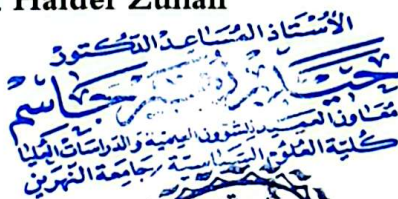 Haider Zuhair
الأستاذ المساعد الدكتور
حيدر زهير جاسم
معاون العميد للشؤون العلمية والدراسات العليا
كلية العلوم السياسية / جامعة النهرين